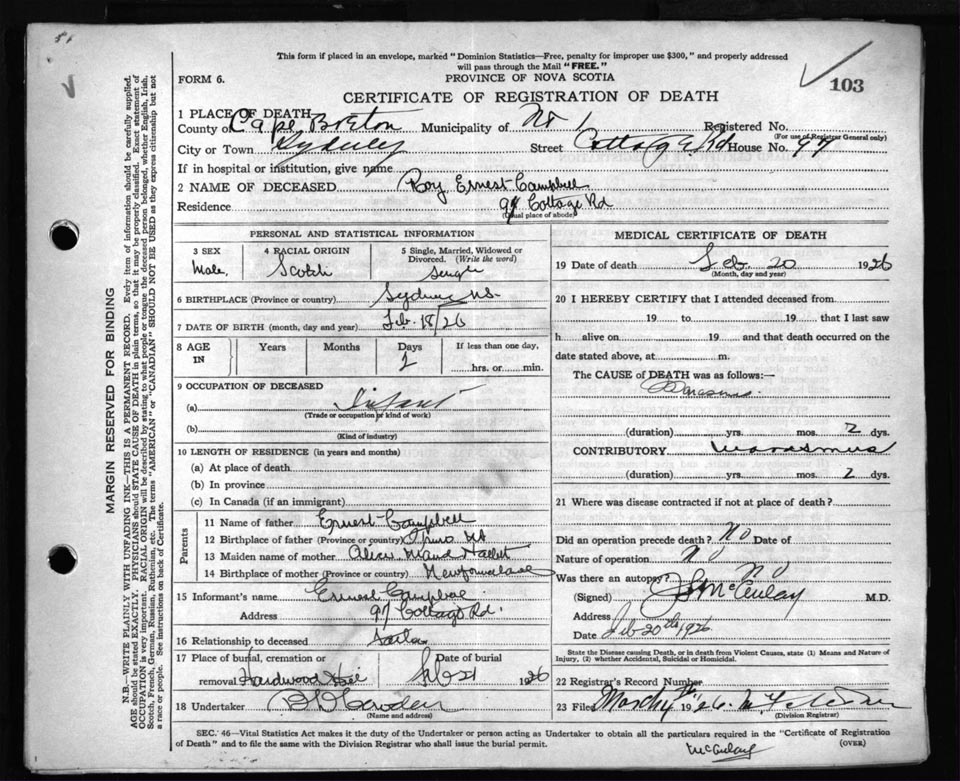 51
This form if placed in an envelope, marked "Dominion Statistics—Free, penalty for improper use $300," and properly addressed
will pass through the Mail "FREE."
FORM 6.
PROVINCE OF NOVA SCOTIA
103
CERTIFICATE OF REGISTRATION OF DEATH
1 PLACE OF DEATH
County of Cape Breton Municipality of No 1 Registered No.
(For use of Registrar General only)
City or Town Sydney Street Cottage Rd House No. 97
If in hospital or institution, give name
2 NAME OF DECEASED Roy Ernest Campbell
Residence 97 Cottage Rd
(Usual place of abode)
PERSONAL AND STATISTICAL INFORMATION
3 SEX 4 RACIAL ORIGIN 5 Single, Married, Widowed or
Divorced. (Write the word)
Male Scotch Single
6 BIRTHPLACE (Province or country) Sydney N.S.
7 DATE OF BIRTH (month, day and year) Feb. 18/26
8 AGE IN Years Months Days If less than one day,
2 hrs. or min.
9 OCCUPATION OF DECEASED
(a) Infant
(Trade or occupation or kind of work)
(b)
(Kind of industry)
10 LENGTH OF RESIDENCE (in years and months)
(a) At place of death
(b) In province
(c) In Canada (if an immigrant)
Parents
11 Name of father Ernest Campbell
12 Birthplace of father (Province or country) Truro NS
13 Maiden name of mother Maud
14 Birthplace of mother (Province or country) Newfoundland
15 Informant's name Ernest Campbell
Address 97 Cottage Rd.
16 Relationship to deceased
17 Place of burial, cremation or Date of burial
removal Hardwood Hill Feb 21 1926
18 Undertaker
(Name and address)
MEDICAL CERTIFICATE OF DEATH
19 Date of death Feb. 20 1926
(Month, day and year)
20 I HEREBY CERTIFY that I attended deceased from
19 to 19 that I last saw
h alive on 19 and that death occurred on the
date stated above, at m.
The CAUSE of DEATH was as follows:—
(duration) yrs. mos. 2 dys.
CONTRIBUTORY Marasmus
(duration) yrs. mos. 2 dys.
21 Where was disease contracted if not at place of death?
Did an operation precede death? No Date of
Nature of operation No
Was there an autopsy? No
(Signed) McAulay M.D.
Address
Date Feb 20th 1926
State the Disease causing Death, or in death from Violent Causes, state (1) Means and Nature of
Injury, (2) whether Accidental, Suicidal or Homicidal.
22 Registrar's Record Number
23 Filed March 19 26
(Division Registrar)
SEC. 46—Vital Statistics Act makes it the duty of the Undertaker or person acting as Undertaker to obtain all the particulars required in the "Certificate of Registration
of Death" and to file the same with the Division Registrar who shall issue the burial permit.
(OVER)
McAulay
MARGIN RESERVED FOR BINDING
N.B.—WRITE PLAINLY WITH UNFADING INK—THIS IS A PERMANENT RECORD. Every item of information should be carefully supplied.
AGE should be stated EXACTLY. PHYSICIANS should STATE CAUSE OF DEATH in plain terms, so that it may be properly classified. Exact statement of
OCCUPATION is very important. RACIAL ORIGIN will be described by stating to what people or tongue the deceased person belonged, whether English, Irish,
Scotch, French, German, Russian, Ruthenian, etc. The terms "AMERICAN" or "CANADIAN" SHOULD NOT BE USED as they express citizenship but not
a race or people. See instructions on back of Certificate.